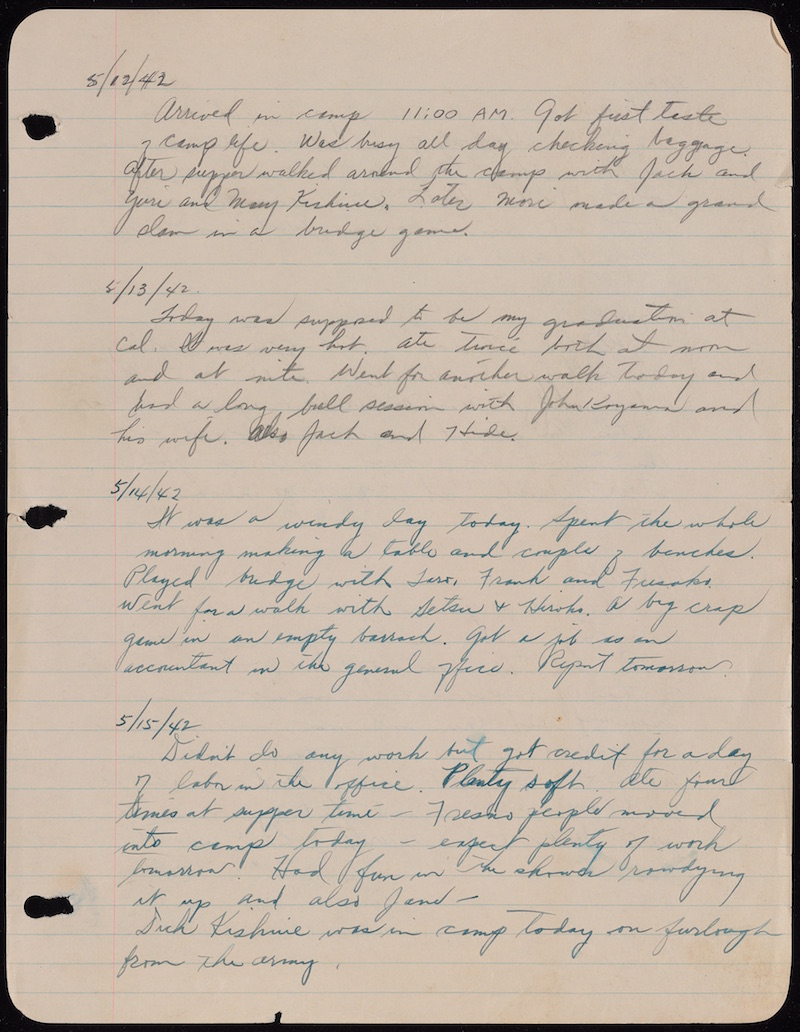 5/12/42
Arrived in camp 11:00 AM. Got first taste
of camp life. Was busy all day checking baggage.
After supper walked around the camp with Jack and
Yuri and Mary Kishiue. Later Mori made a grand
slam in a bridge game.
5/13/42.
Today was supposed to be my graduation at
Cal. It was very hot. Ate twice both at noon
and at nite. Went for another walk today and
had a long bull session with John Koyama and
his wife. Also Jack and Hide.
5/14/42
It was a windy day today. Spent the whole
morning making a table and couple of benches.
Played bridge with Taro, Frank and Fusako.
Went for a walk with Setsu & Hiroko. A big crap
game in an empty barrack. Got a job as an
accountant in the general office. Report tomorrow.
5/15/42
Didn't do any work but got credit for a day
of labor in the office. Plenty soft. Ate four
times at supper time - Fresno people moved
into camp today - expect plenty of work
tomorrow. Had fun in the shower rowdying
it up and also
Dick Kishiue was in camp today on furlough
from the army.